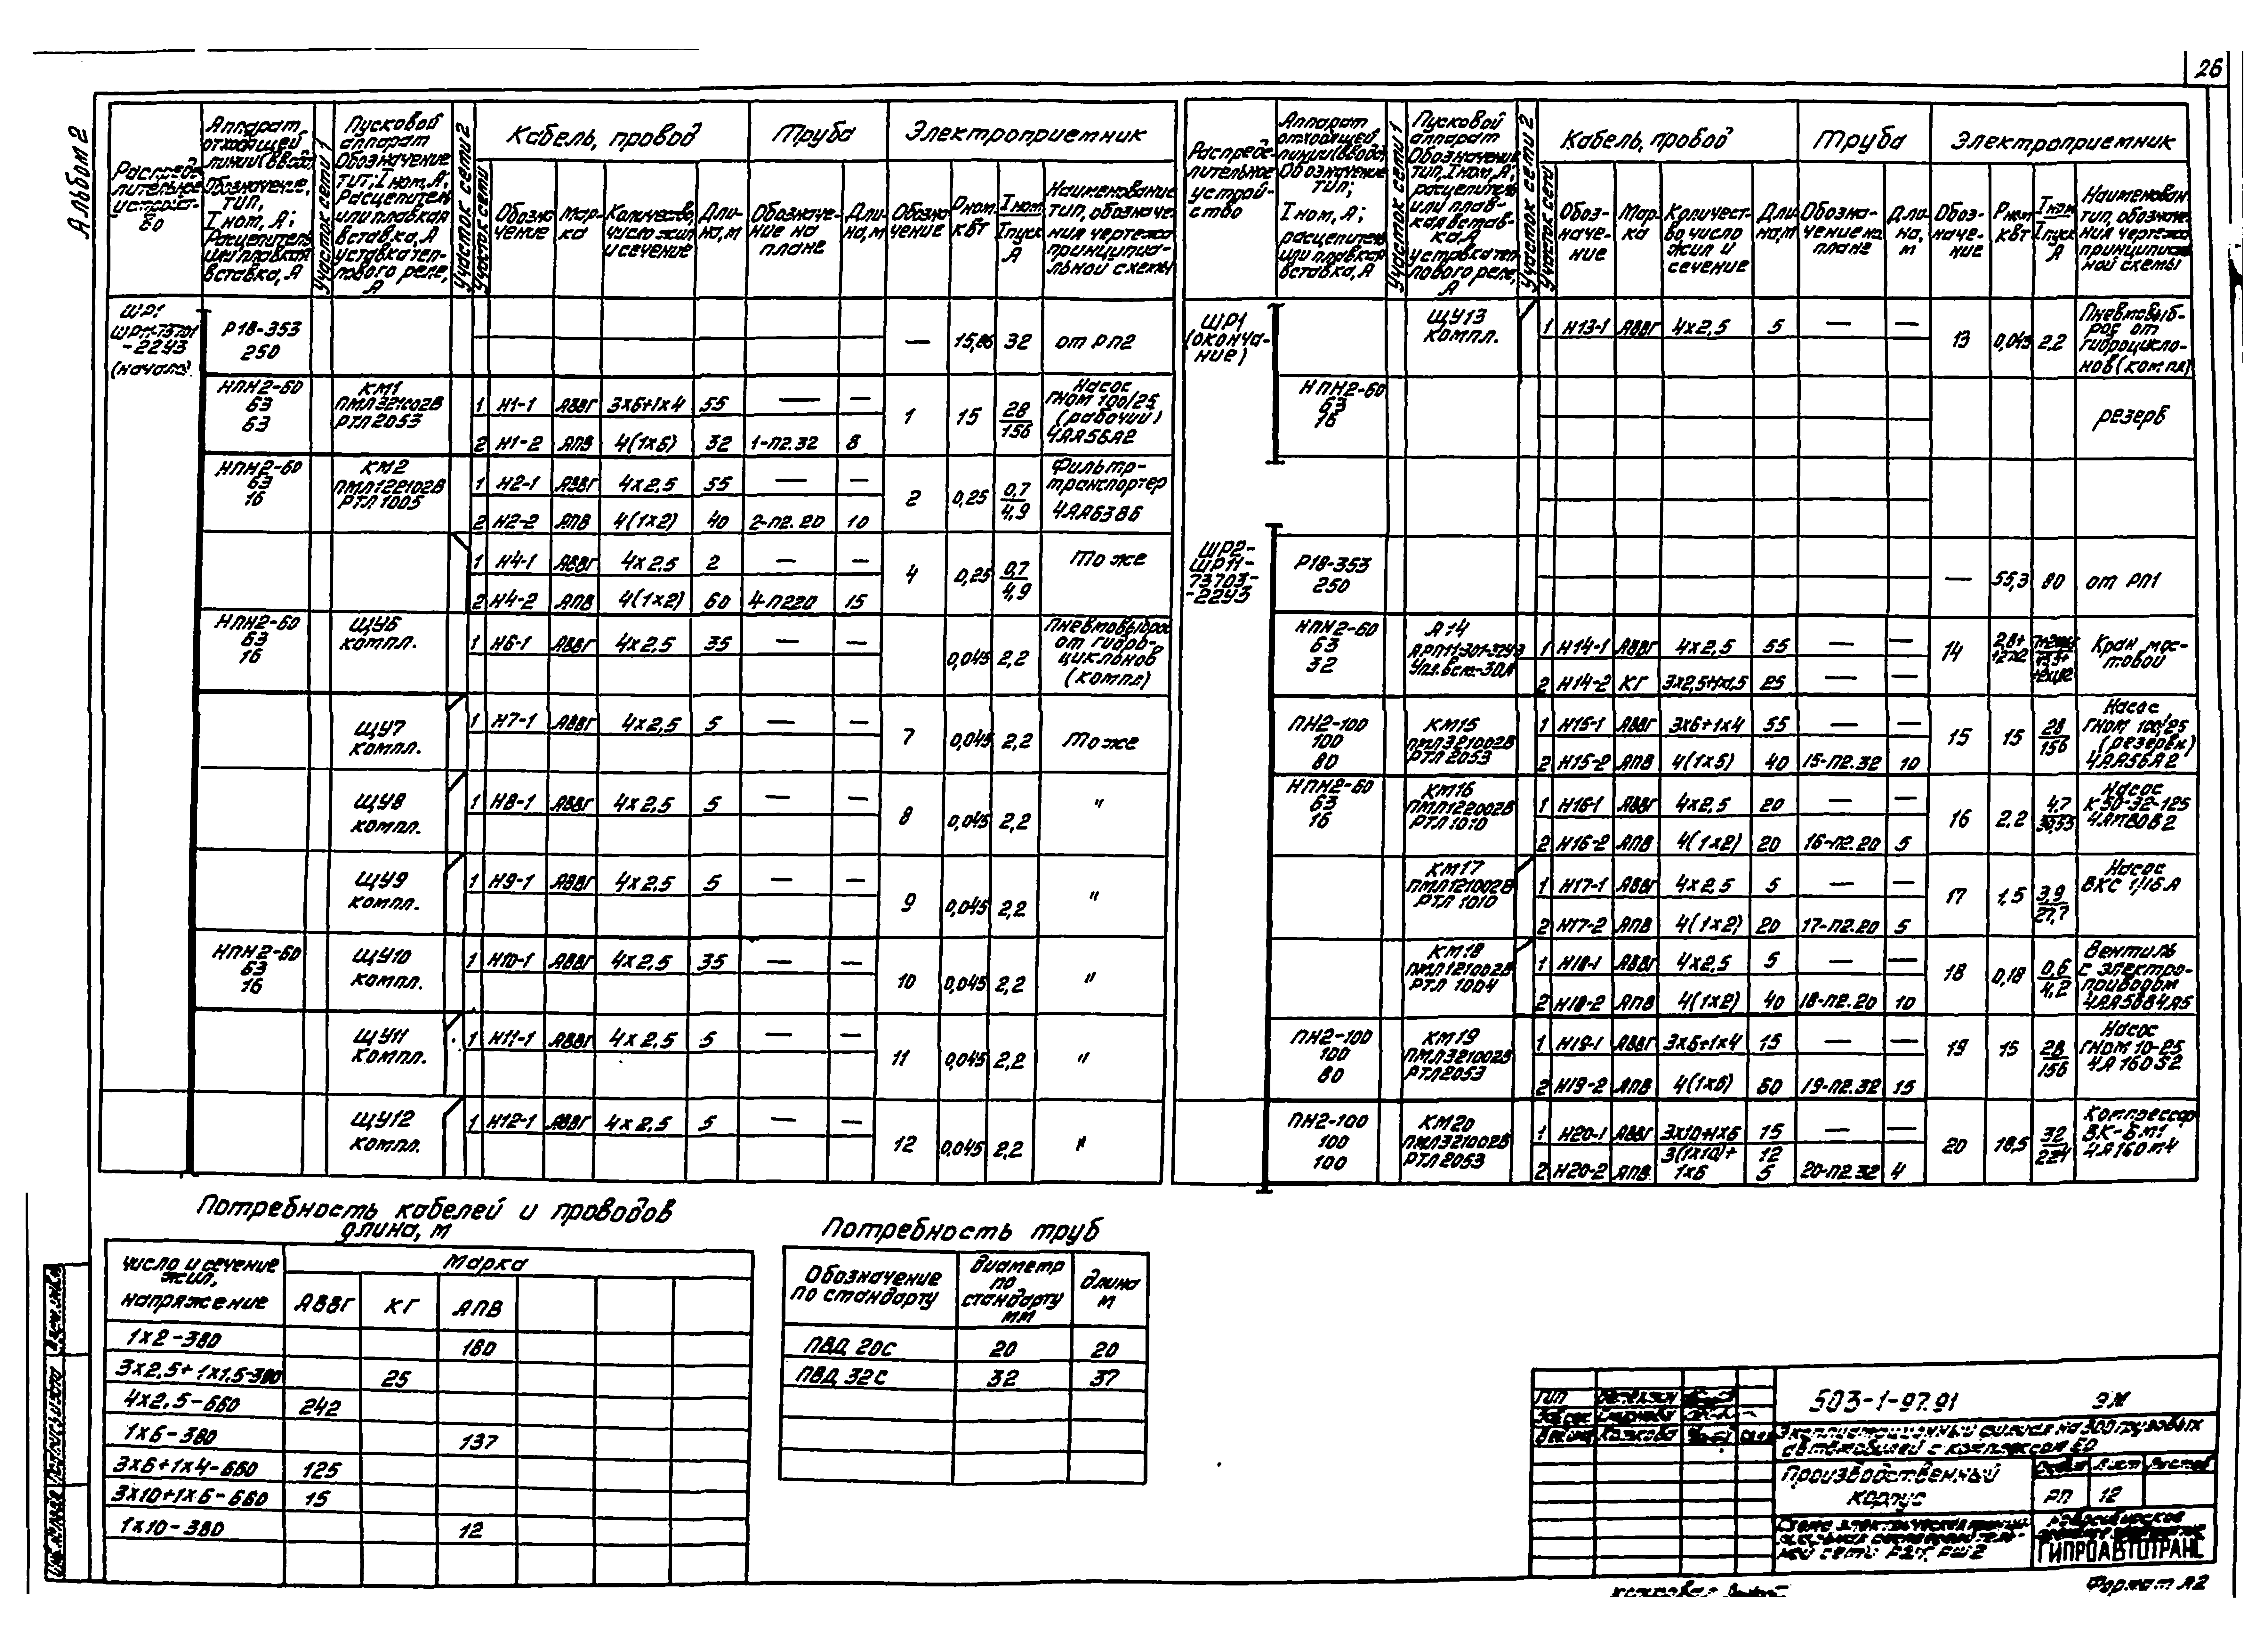 26
Альбом 2
Распреде-
лительное
устройст-
во
Аппарат
отходящей
линии (ввода)
Обозначение,
тип,
Iном, А;
Расцепитель
или плавкая
вставка, А
Участок сети 1
Пусковой
аппарат
Обозначение
тип; Iном, А;
Расцепитель
или плавкая
вставка, А
уставка теп-
лового реле,
А
Участок сети 2
Участок сети
Кабель, провод
Обозна-
чение
Мар-
ка
Количество,
число жил
и сечение
Дли-
на, м
Труба
Обозначе-
ние на
плане
Дли-
на, м
Электроприемник
Обозна-
чение
Pном
кВт
Iном
Iпуск
А
Наименование
тип, обозначе-
ния чертежа
принципиа-
льной схемы
ШР1
ШР11-73701
-22У3
(начало)
Р18-353
250
— 15,86 32 от РП2
НПН2-60
63
63
КМ1
ПМЛ321002В
РТЛ2053
1 Н1-1 АВВГ 3х6+1х4 55 — —
2 Н1-2 АПВ 4(1х6) 32 1-П2.32 8
1 15 28/156
Насос
ГНОМ 100/25
(рабочий)
4АА56А2
НПН2-60
63
16
КМ2
ПМЛ122102В
РТЛ1005
1 Н2-1 АВВГ 4х2,5 55 — —
2 Н2-2 АПВ 4(1х2) 40 2-П2.20 10
2 0,25 0,7/4,9
Фильтр-
транспортер
4АА63В6
1 Н4-1 АВВГ 4х2,5 2 — —
2 Н4-2 АПВ 4(1х2) 60 4-П220 15
4 0,25 0,7/4,9 То же
НПН2-60
63
16
ЩУ6
компл.
1 Н6-1 АВВГ 4х2,5 35 — —
0,045 2,2
Пневмовыброс
от гидро-
циклонов
(компл)
ЩУ7
компл.
1 Н7-1 АВВГ 4х2,5 5 — —
7 0,045 2,2 То же
ЩУ8
компл.
1 Н8-1 АВВГ 4х2,5 5 — —
8 0,045 2,2 "
ЩУ9
компл.
1 Н9-1 АВВГ 4х2,5 5 — —
9 0,045 2,2 "
НПН2-60
63
16
ЩУ10
компл.
1 Н10-1 АВВГ 4х2,5 35 — —
10 0,045 2,2 "
ЩУ11
компл.
1 Н11-1 АВВГ 4х2,5 5 — —
11 0,045 2,2 "
ЩУ12
компл.
1 Н12-1 АВВГ 4х2,5 5 — —
12 0,045 2,2 "
Распреде-
лительное
устрой-
ство
Аппарат
отходящей
линии (ввода)
Обозначение
тип;
Iном, А;
расцепитель
или плавкая
вставка, А
Участок сети 1
Пусковой
аппарат
Обозначение
тип, Iном, А;
расцепитель
или плав-
кая встав-
ка, А
уставка теп-
лового реле,
А
Участок сети 2
Участок сети
Кабель, провод
Обоз-
наче-
ние
Мар-
ка
Количест-
во число
жил и
сечение
Дли-
на, м
Труба
Обозна-
чение на
плане
Дли-
на,
м
Электроприемник
Обоз-
наче-
ние
Pном
кВт
Iном
Iпуск
А
Наименован.
тип, обозначе-
ния чертежа
принципиаль-
ной схемы
ШР1
(оконча-
ние)
ЩУ13
компл.
1 Н13-1 АВВГ 4х2,5 5 — —
13 0,045 2,2
Пневмовыб-
рос от
гидроцикло-
нов (компл)
НПН2-60
63
16
резерв
ШР2-
ШР11-
73703-
-22У3
Р18-353
250
— 55,3 80 от РП1
НПН2-60
63
32
А14
1 Н14-1 АВВГ 4х2,5 55 — —
2 Н14-2 КГ 3х2,5+1х1,5 25 — —
14
Кран мос-
товой
ПН2-100
100
80
КМ15
ПМЛ321002В
РТЛ2053
1 Н15-1 АВВГ 3х6+1х4 55 — —
2 Н15-2 АПВ 4(1х6) 40 15-П2.32 10
15 15 28/156
Насос
ГНОМ 100/25
(резервн)
4АА56А2
НПН2-60
63
16
КМ16
ПМЛ122002В
РТЛ1010
1 Н16-1 АВВГ 4х2,5 20 — —
2 Н16-2 АПВ 4(1х2) 20 16-П2.20 5
16 2,2 4,7/30,55
Насос
К50-32-125
4АП80В2
КМ17
ПМЛ121002В
РТЛ1010
1 Н17-1 АВВГ 4х2,5 5 — —
2 Н17-2 АПВ 4(1х2) 20 17-П2.20 5
17 1,5 3,9/27,7
Насос
ВКС 1/16А
КМ18
ПМЛ121002В
РТЛ 1004
1 Н18-1 АВВГ 4х2,5 5 — —
2 Н18-2 АПВ 4(1х2) 40 18-П2.20 10
18 0,18 0,6/4,2
Вентиль
с электро-
приводом
4АА56В4А5
ПН2-100
100
80
КМ19
ПМЛ321002В
РТЛ2053
1 Н19-1 АВВГ 3х6+1х4 15 — —
2 Н19-2 АПВ 4(1х6) 60 19-П2.32 15
19 15 28/156
Насос
ГНОМ 10-25
4А160S2
ПН2-100
100
100
КМ20
ПМЛ321002В
РТЛ2053
1 Н20-1 АВВГ 3х10+1х6 15 — —
2 Н20-2 АПВ 3(1х10)+ 1х6 12 5 20-П2.32 4
20 18,5 32/224
Компрессор
ВК-6М1
4А160М4
Потребность кабелей и проводов
длина, м
Число и сечение
жил,
напряжение
Марка
АВВГ КГ АПВ
1х2-380 180
3х2,5+1х1,5-380 25
4х2,5-660 242
1х6-380 137
3х6+1х4-660 125
3х10+1х6-660 15
1х10-380 12
Потребность труб
Обозначение
по стандарту
Диаметр
по
стандарту
мм
Длина
м
ПВД 20С 20 20
ПВД 32С 32 37
ГИП
503-1-97.91 ЭМ
Эксплуатационный филиал на 300 грузовых
автомобилей с комплексом ЕО
Производственный
корпус
Стадия Лист Листов
РП 12
ГИПРОАВТОТРАНС
Формат А2